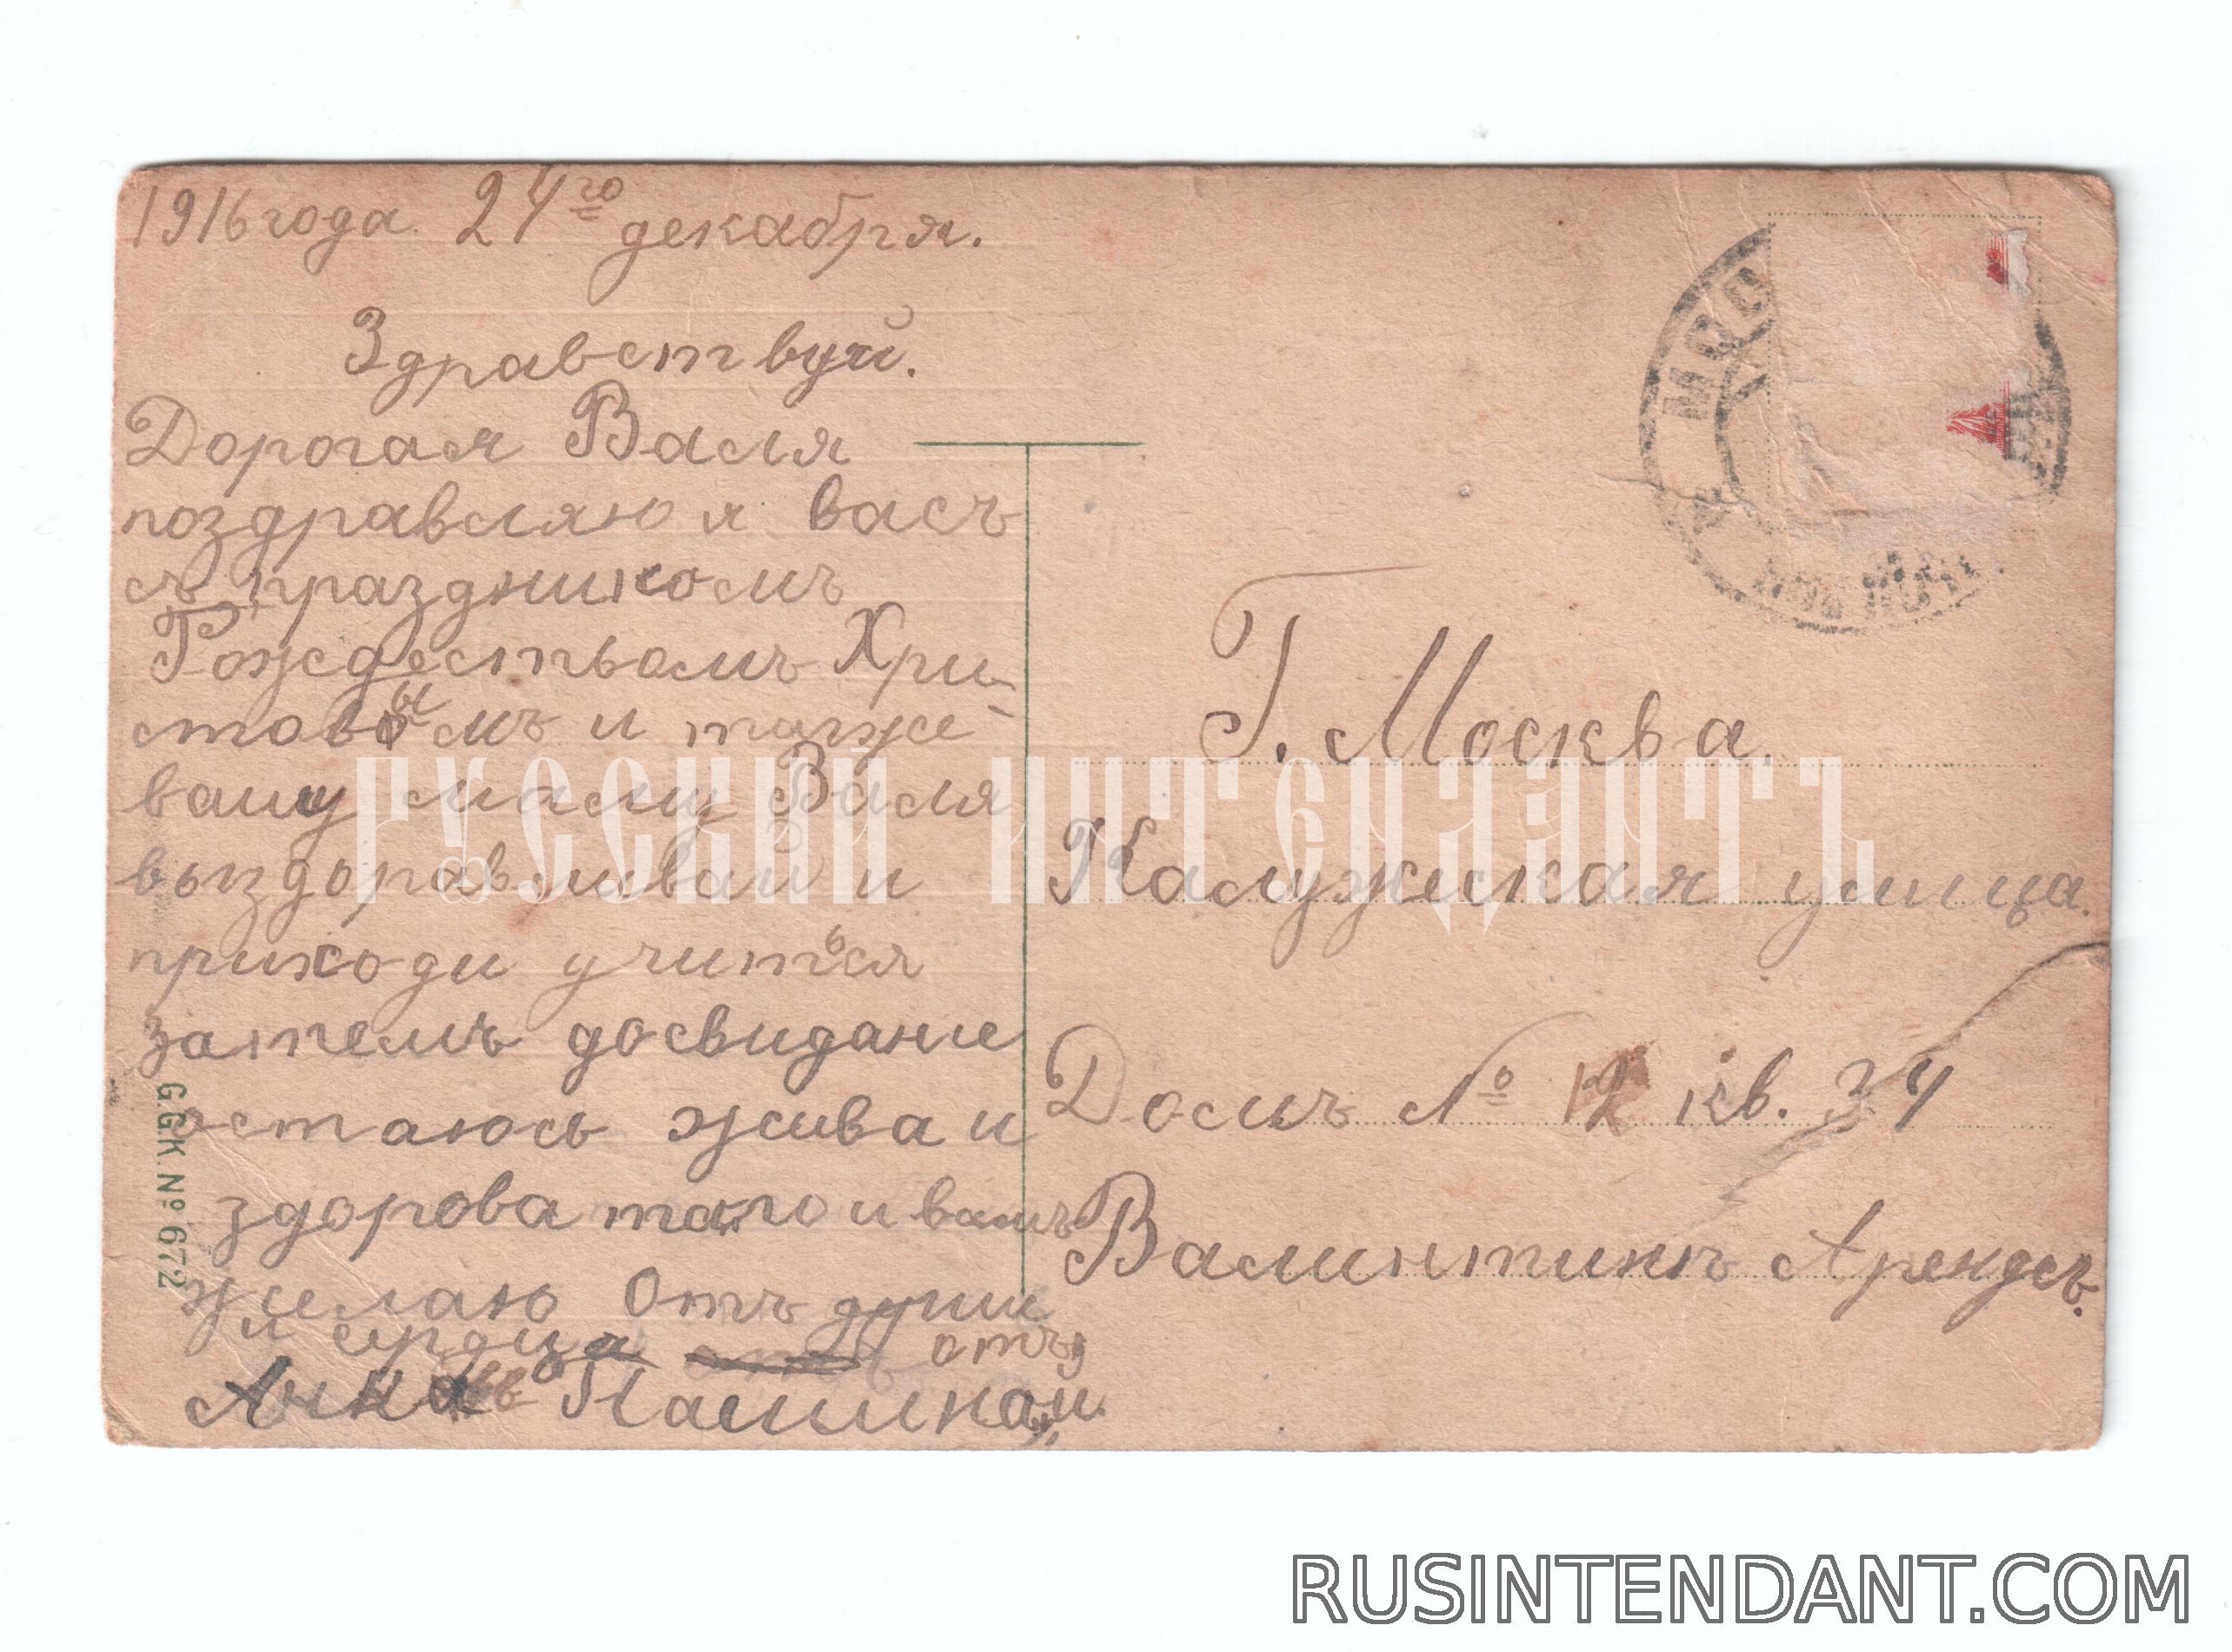 1916 года. 24го декабря.
Здравствуй.
Дорогая Валя
поздравляю я васъ
съ праздникомъ
Рождествомъ Хри-
стовымъ и также
вашу маму Валя
выздоравливай и
приходи учиться
затемъ досвидание
остаюсь жива и
здорова таго и вамъ
желаю Отъ души
и сердца отъ
Анны
G.G.K. № 672
МОС
Г. Москва.
Калужская улица.
Домъ № 12 кв. 34
Валинтинъ Арендсъ.
РУССКИЙ ИНТЕНДАНТЪ
RUSINTENDANT.COM